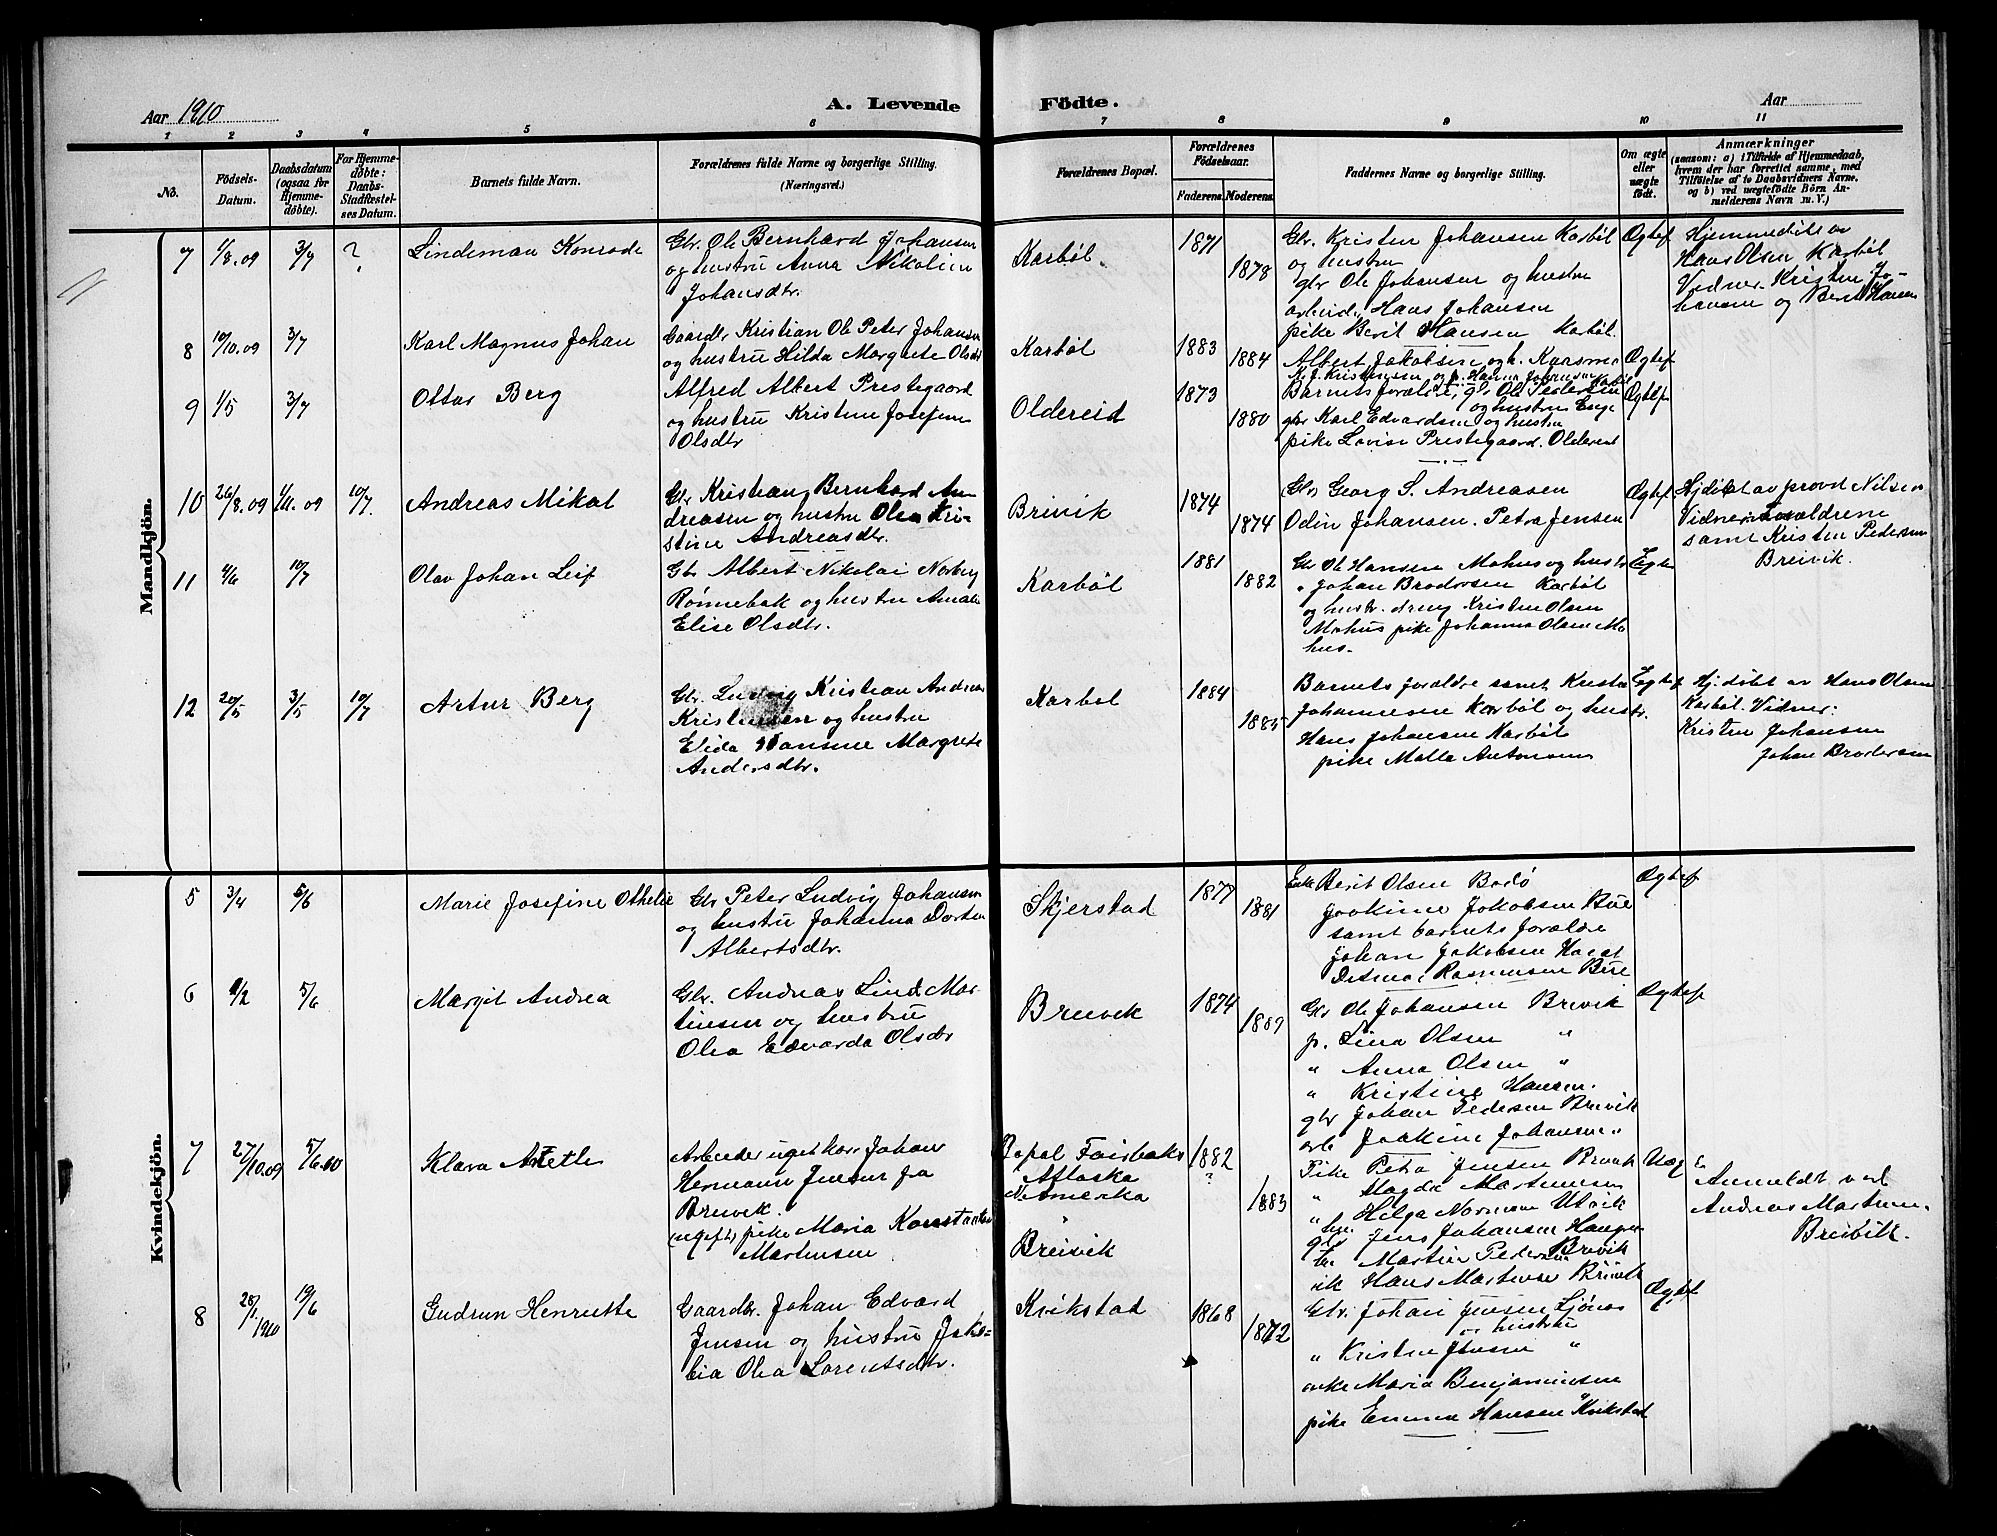 Aar 1910
A. Levende Födte.
Aar
1 2 3 4 5 6 7 8 9 10 11
No.
Födsels-
Datum.
Daabsdatum
(ogsaa for
Hjemme-
döbte).
For Hjemme-
döbte:
Daabs-
Stadfæstel-
ses Datum.
Barnets fulde Navn.
Forældrenes fulde Navne og borgerlige Stilling.
(Næringsvei.)
Forældrenes Bopæl.
Forældrenes
Födselsaar.
Faderens.
Moderens.
Faddernes Navne og borgerlige Stilling.
Om ægte
eller
uægte
födt.
Anmærkninger
(saasom: a) i Tilfælde af Hjemmedaab,
hvem der har forrettet samme, med
Tilföielse af to Daabsvidners Navne,
og b) ved uægtefödte Börn An-
melderens Navn m. V.)
Mandkjön.
7 1/8.09 3/7 ? Lindeman Konrade
Gbr. Ole Bernhard Johansen
og hustru Anna Nikoline
Johansdtr.
Karbøl.
1871
1878
Gbr. Kristen Johansen Karbøl
og hustru
gbr Ole Johansen og hustru
arbeid. Hans Johansen
pike Berit Hansen Karbøl.
Ægtef
Hjemmedøbt av
Hans Olsen Karbøl
Vidner. Kristen Jo-
hansen og Berit Hansen
8 10/10.09 3/7 Karl Magnus Johan
Gaardbr Kristian Ole Peter Johansen
og hustru Hilda Margrete Olsdtr
Karbøl
1883
1884
Albert Jakobsen og h. Kaasmo
Kristensen og p. Hanna Johansen Karbøl
Ægtef
9 1/5 3/7 Ottar Berg
Alfred Albert Prestegaard
og hustru Kristine Josefine
Olsdtr
Oldereid
1873
1880
Barnets forældre, gbr Ole Pedersen
og hustru Enge
gbr Karl Edvardsen og hustru
pike Lovise Prestegaard. Oldereid
Ægtef
10 26/8.09 1/11.09 10/7. Andreas Mikal
Gbr Kristian Bernhard An-
dreasen og hustru Olea Kri-
stine Andreasdtr.
Breivik
1874
1874
Gbr Georg S. Andreasen
Odin Johansen. Petra Jensen
Ægtef
Hjdøbt av provst Nilsen
Vidner: Forældrene
samt Kristen Pedersen
Breivik.
11 4/6 10/7 Olav Johan Leif
Gbr Albert Nikolai Norberg
Rønnebak og hustru Amalie
Elise Olsdtr.
Karbøl
1881
1882
Gbr Ole Hansen Mohus og hustr
" Johan Brodersen Karbøl
og hustr. dreng Kristen Olsen
Mohus pike Johanna Olsen Mo
hus.
Ægte
12 20/5 3/5 10/7 Artur Berg
Gbr. Ludvig Kristian Andreas
Kristensen og hustru
Elida Hansine Margrete
Andersdtr.
Karbøl
1884
1885
Barnets forældre samt Kristen
Johannesen Karbøl og hustr.
Hans Johansen Karbøl
pike Malla Antonsen
Ægtef
Hj.døbt av Hans Olsen
Karbøl. Vidner:
Kristen Johansen
Johan Brodersen
Kvindekjön.
5 3/4 5/6 Marie Josefine Othelie
Gbr Peter Ludvig Johansen
og hustru Johanna Dortea
Albertsdtr.
Skjerstad
1877
1881
Enke Berit Olsen Bodø
Joakime Jakobsen Bue
samt barnets forældre
Johan Jakobsen
Ditmar Rasmussen Bue
Ægtef
6 9/2 5/6 Margit Andrea
Gbr. Andreas Lind Mar-
tinsen og hustru
Olea Edvarda Olsdtr
Breivik
1874
1889
Gbr Ole Johansen Breivik
p. Lina Olsen "
" Anna Olsen "
" Kristine Hansen.
gbr Johan Pedersen Breivik
arb Joakim Johansen "
Ægtef
7 27/10.09 5/6.00 Klara Anette
Arbeider ugift kar Johan
Hermann Jensen fra
Breivik.
(ugift) pike Maria Konstanse
Martensen
Bopæl Fairbaks
Allaska
N. Amerika
Breivik
1882
?
1883
Pike Petra Jensen Breivik
" Magda Martinsen
" Helga Norman Utvik
gbr Jens Johansen Haugen
Martin Pedersen Breivik
Hans Martinsen Breivik
Uæg
Anmeldt ved
Andreas Martinsen.
Breivik.
8 28/1 1910 19/6 Gudrun Henriette
Gaardbr. Johan Edvard
Jensen og hustru Jako-
bia Olea Lorentsdtr.
Kvikstad
1868
1872
Gbr. Johan Jensen Ljönes
og hustru
" Kristen Jensen "
enke Maria Benjaminsen
pike Emma Hansen Kvikstad
Ægtef